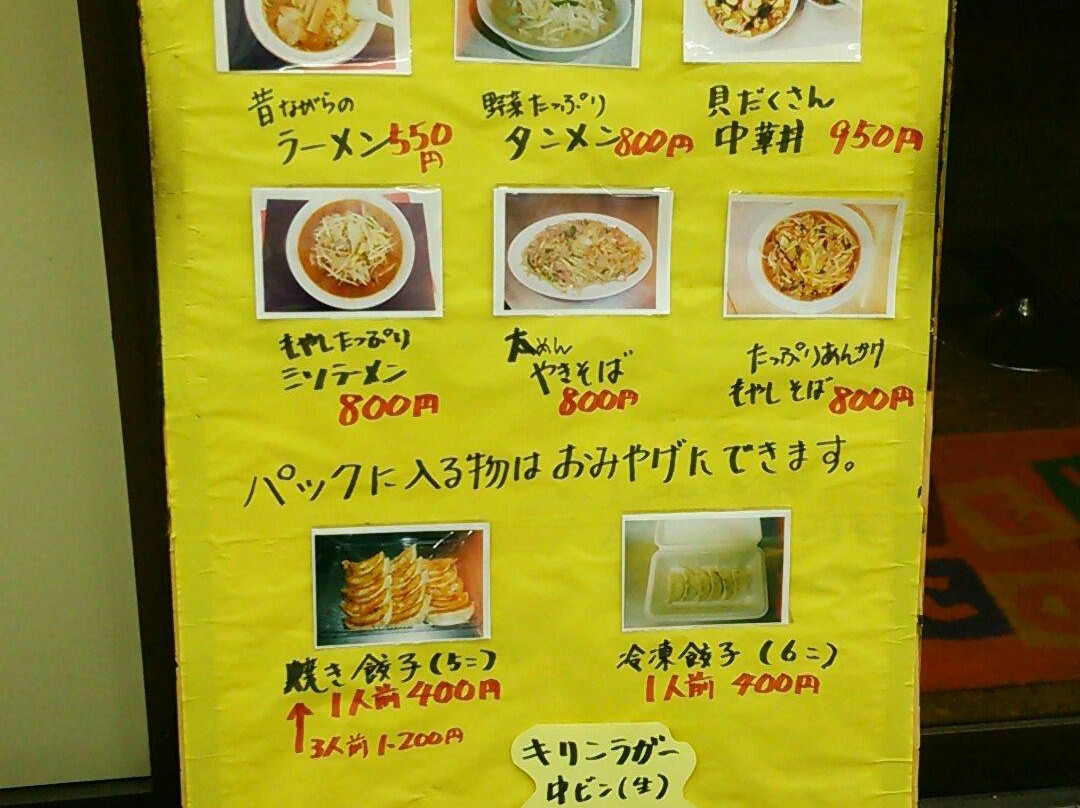 昔ながらの
ラーメン550円
野菜たっぷり
タンメン800円
具だくさん
中華丼 950円
もやしたっぷり
ミソラーメン
800円
太めん
やきそば
800円
たっぷりあんかけ
もやしそば800円
パックに入る物はおみやげにできます。
焼き餃子(5コ)
1人前400円
↑3人前1200円
冷凍餃子(6コ)
1人前 400円
キリンラガー
中ビン(生)